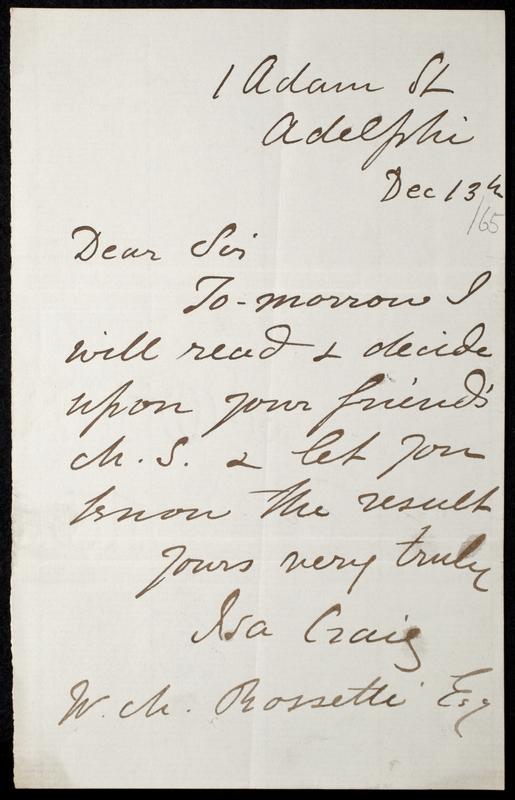 1 Adam St
Adelphi
Dec 13th
/65
Dear Sir
To-morrow I
will read & decide
upon your friend's
M.S. & let you
know the result
yours very truly
Isa Craig
W. M. Rossetti Esq